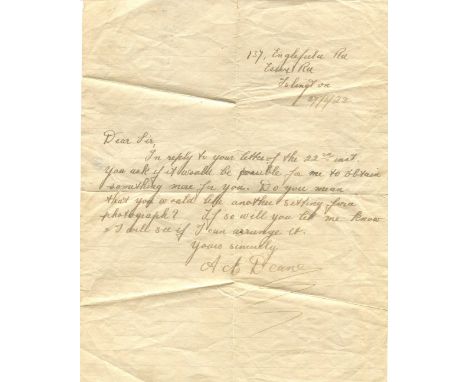 137, Englefield Rd
Essex Rd
Islington
27/9/22
Dear Sir,
In reply to your letter of the 22nd inst.
You ask if it would be possible for me to obtain
something more for you. Do you mean
that you would like another setting for a
photograph? If so will you let me know
& I will see if I can arrange it.
Yours sincerely
A A Deane